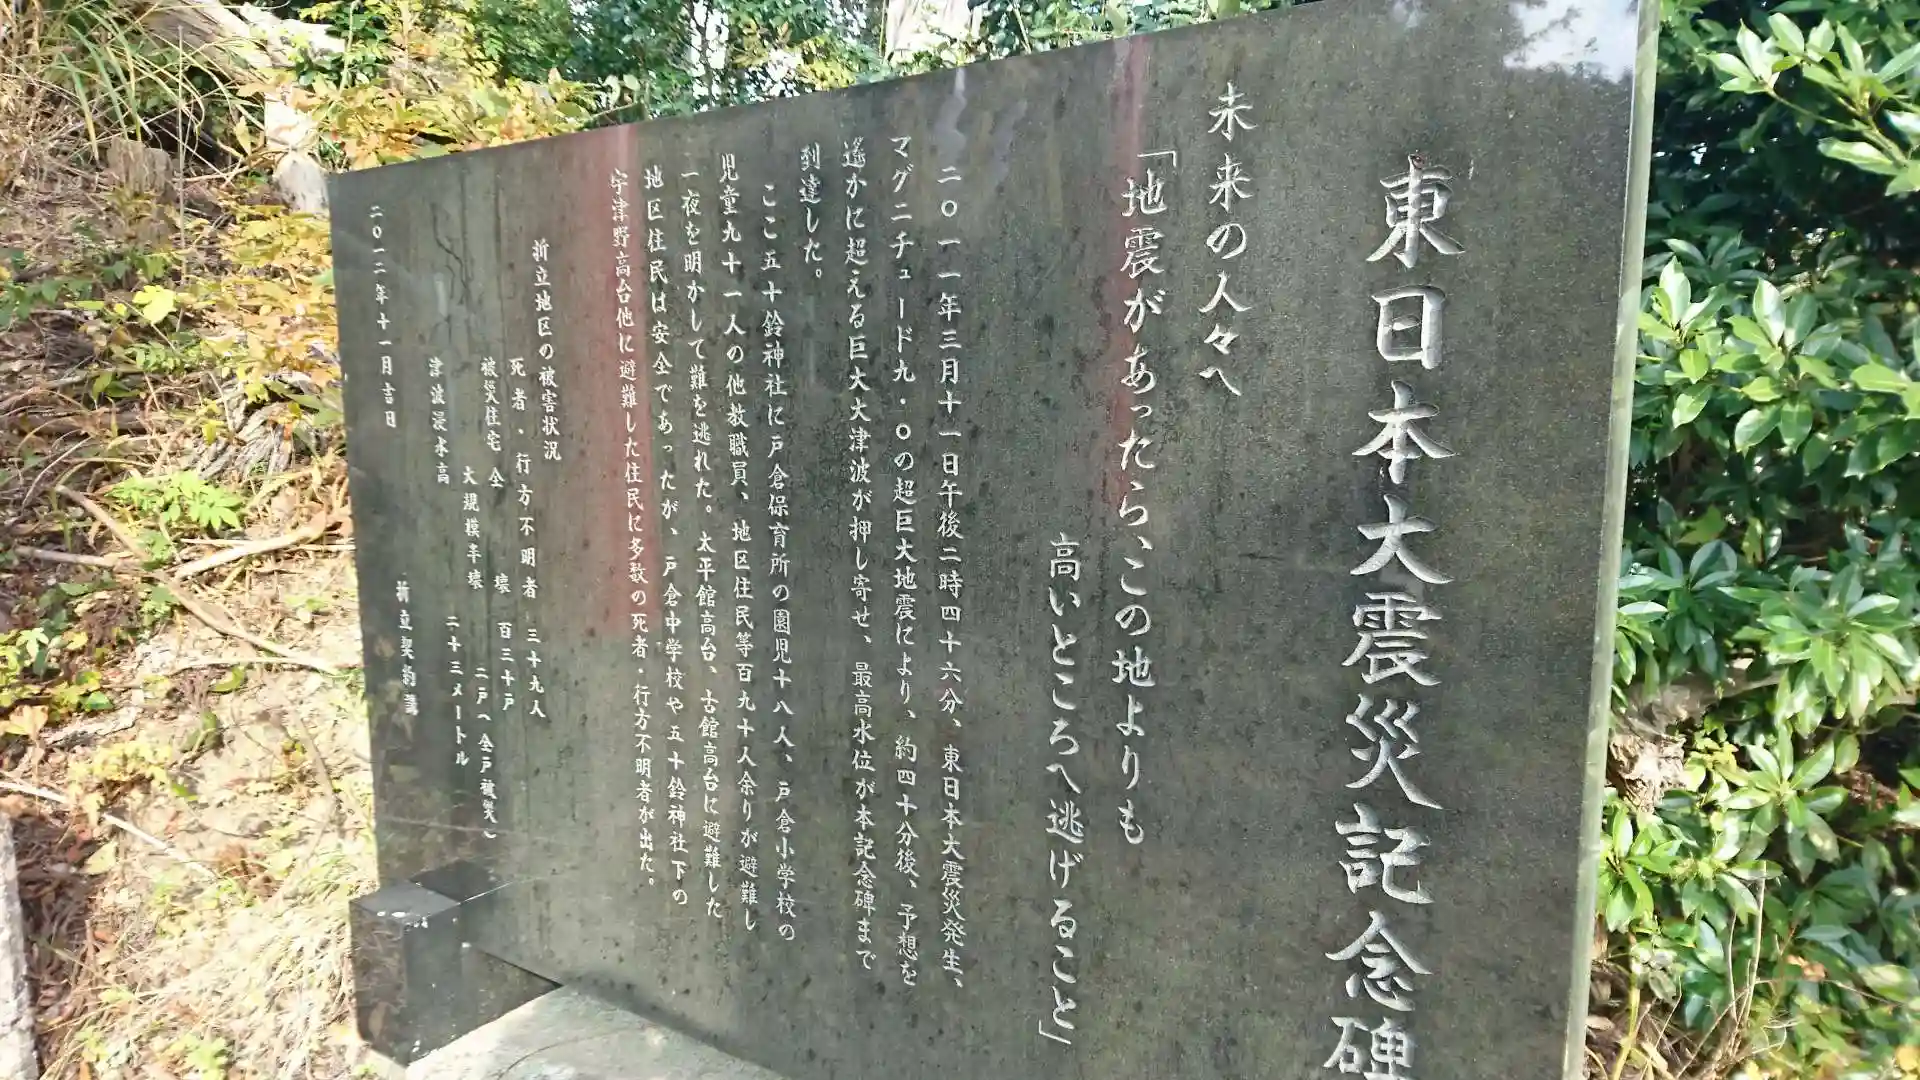 東日本大震災記念碑
未来の人々へ
「地震があったら、この地よりも
高いところへ逃げること」
二〇一一年三月十一日午後二時四十六分、東日本大震災発生、
マグニチュード九・〇の超巨大地震により、約四十分後、予想を
遙かに超える巨大大津波が押し寄せ、最高水位が本記念碑まで
到達した。
ここ五十鈴神社に戸倉保育所の園児十八人、戸倉小学校の
児童九十一人の他教職員、地区住民等百九十人余りが避難し
一夜を明かして難を逃れた。太平館高台、古館高台に避難した
地区住民は安全であったが、戸倉中学校や五十鈴神社下の
宇津野高台他に避難した住民に多数の死者・行方不明者が出た。
折立地区の被害状況
死者・行方不明者 三十九人
被災住宅 全 壊 百三十戸
大規模半壊 二戸(全戸被災)
津波浸水高 二十三メートル
折立契約講
二〇一二年十一月吉日